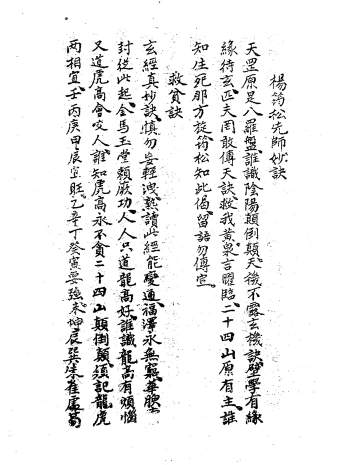 楊筠松先師妙訣
天罡原是八羅盤誰識陰陽顛倒顛天機不露玄機訣壁學有緣
緣待玄匹夫罔敢傳天訣救我黃泉言曜臨二十四山原有主誰
知生死那方旋筠松知此偈留語勿傳宣
救貧訣
玄經真妙訣慎勿妄輕洩熟讀此經能變通福澤永無窮華腴
封從此起金馬玉堂賴厥功人人只道龍高好誰識龍高有煩惱
又道虎高會咬人誰知虎高永不貪二十四山顛倒顛須記龍虎
兩相宜壬丙庚甲辰宜旺乙辛丁癸寅要強來坤辰巽朱雀